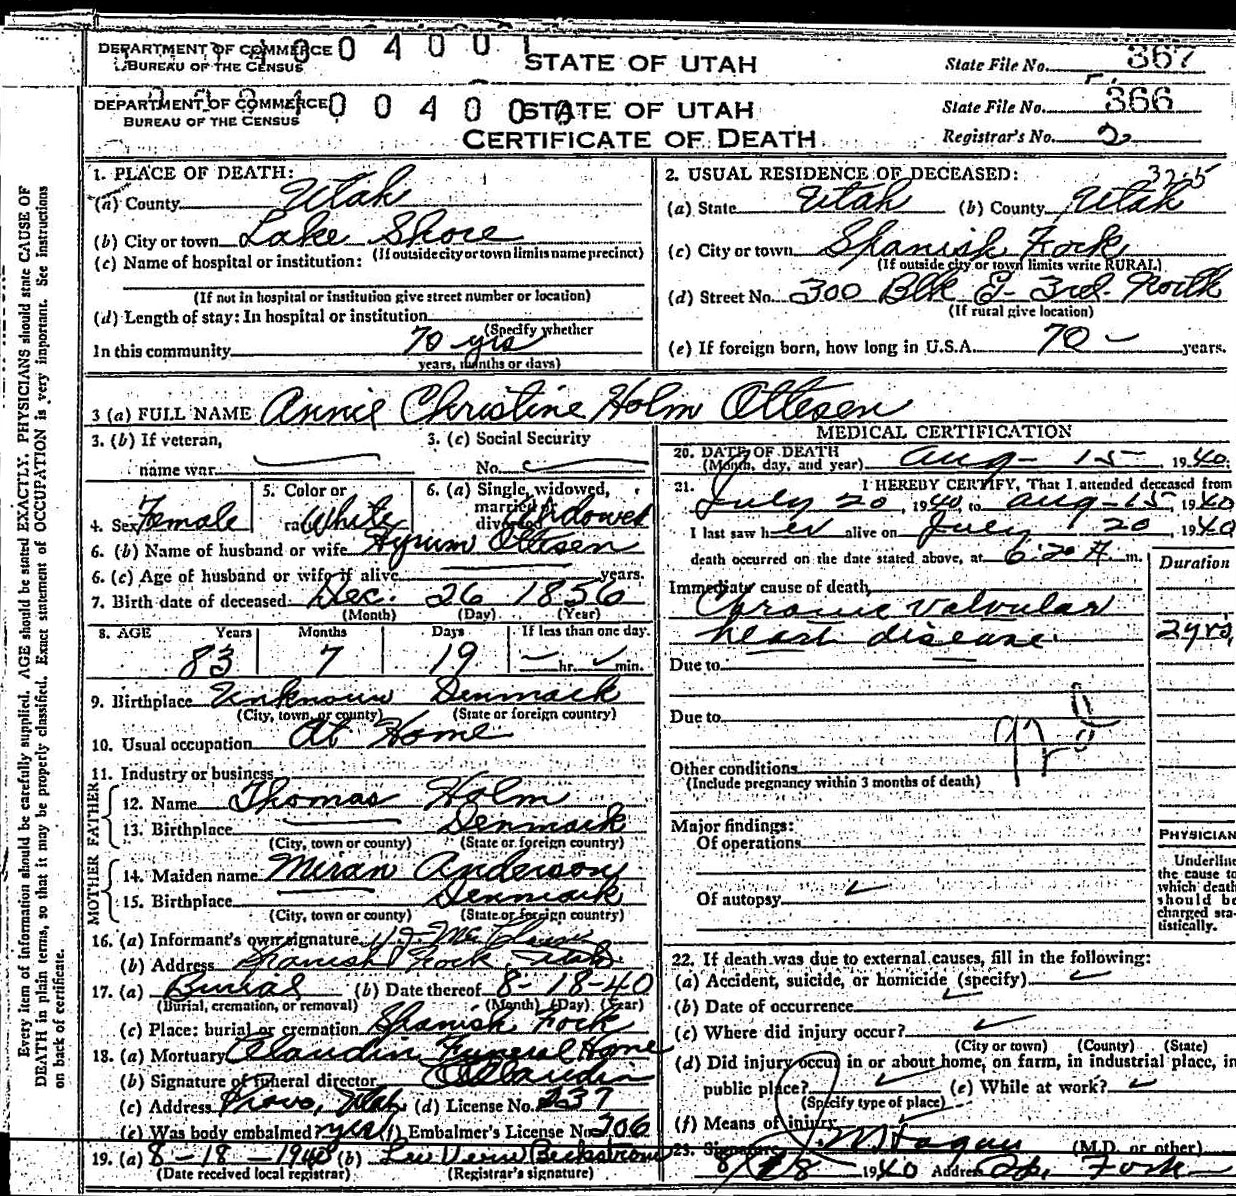 DEPARTMENT OF COMMERCE
BUREAU OF THE CENSUS
0 4 0 0 1
STATE OF UTAH
State File No. 367
DEPARTMENT OF COMMERCE
BUREAU OF THE CENSUS
0 0 4 0 0
STATE OF UTAH
State File No. 366
CERTIFICATE OF DEATH
Registrar's No. 2
Every item of information should be carefully supplied. AGE should be stated EXACTLY. PHYSICIANS should state CAUSE OF
DEATH in plain terms, so that it may be properly classified. Exact statement of OCCUPATION is very important. See instructions
on back of certificate.
1. PLACE OF DEATH:
(a) County Utah
(b) City or town Lake Shore
(If outside city or town limits name precinct)
(c) Name of hospital or institution:
(If not in hospital or institution give street number or location)
(d) Length of stay: In hospital or institution
(Specify whether
In this community 70 yrs
years, months or days)
2. USUAL RESIDENCE OF DECEASED: 325
(a) State Utah (b) County Utah
(c) City or town Spanish Fork
(If outside city or town limits write RURAL)
(d) Street No. 300 Blk E - 3rd North
(If rural give location)
(e) If foreign born, how long in U.S.A. 70 - years.
3 (a) FULL NAME Annie Christine Holm Ottesen
3. (b) If veteran,
name war
3. (c) Social Security
No.
4. Sex Female
5. Color or
race White
6. (a) Single, widowed,
married or
divorced Widowed
6. (b) Name of husband or wife Hyrum Ottesen
6. (c) Age of husband or wife if alive years.
7. Birth date of deceased Dec. 26 1856
(Month) (Day) (Year)
8. AGE Years Months Days If less than one day.
83 7 19 hr. min.
9. Birthplace Unknown Denmark
(City, town, or county) (State or foreign country)
10. Usual occupation At Home
11. Industry or business
FATHER
12. Name Thomas Holm
13. Birthplace Denmark
(City, town or county) (State or foreign country)
MOTHER
14. Maiden name Miran Anderson
15. Birthplace Denmark
(City, town or county) (State or foreign country)
16. (a) Informant's own signature
(b) Address Spanish Fork Utah
17. (a) Burial (b) Date thereof 8-18-40
(Burial, cremation, or removal) (Month) (Day) (Year)
(c) Place: burial or cremation Spanish Fork
18. (a) Mortuary Claudin Funeral Home
(b) Signature of funeral director Claudin
(c) Address Provo, Utah (d) License No. 237
(e) Was body embalmed? yes (f) Embalmer's License No. 206
19. (a) 8-18-1940 (b)
(Date received local registrar) (Registrar's signature)
MEDICAL CERTIFICATION
20. DATE OF DEATH
(Month, day, and year) Aug - 15 -, 1940
21. I HEREBY CERTIFY, That I attended deceased from
July 20, 1940 to Aug - 15, 1940
I last saw her alive on July 20, 1940
death occurred on the date stated above, at 6:20 A m.
Duration
Immediate cause of death
Chronic Valvular
heart disease. 2 yrs.
Due to
Due to
92
Other conditions
(Include pregnancy within 3 months of death)
Major findings:
Of operations
Of autopsy
PHYSICIAN
Underline
the cause to
which death
should be
charged sta-
tistically.
22. If death was due to external causes, fill in the following:
(a) Accident, suicide, or homicide (specify)
(b) Date of occurrence
(c) Where did injury occur?
(City or town) (County) (State)
(d) Did injury occur in or about home, on farm, in industrial place, in
public place? (e) While at work?
(Specify type of place)
(f) Means of injury
23. Signature J. M. Fagan (M.D. or other)
8/18 - 1940 Address Sp. Fork